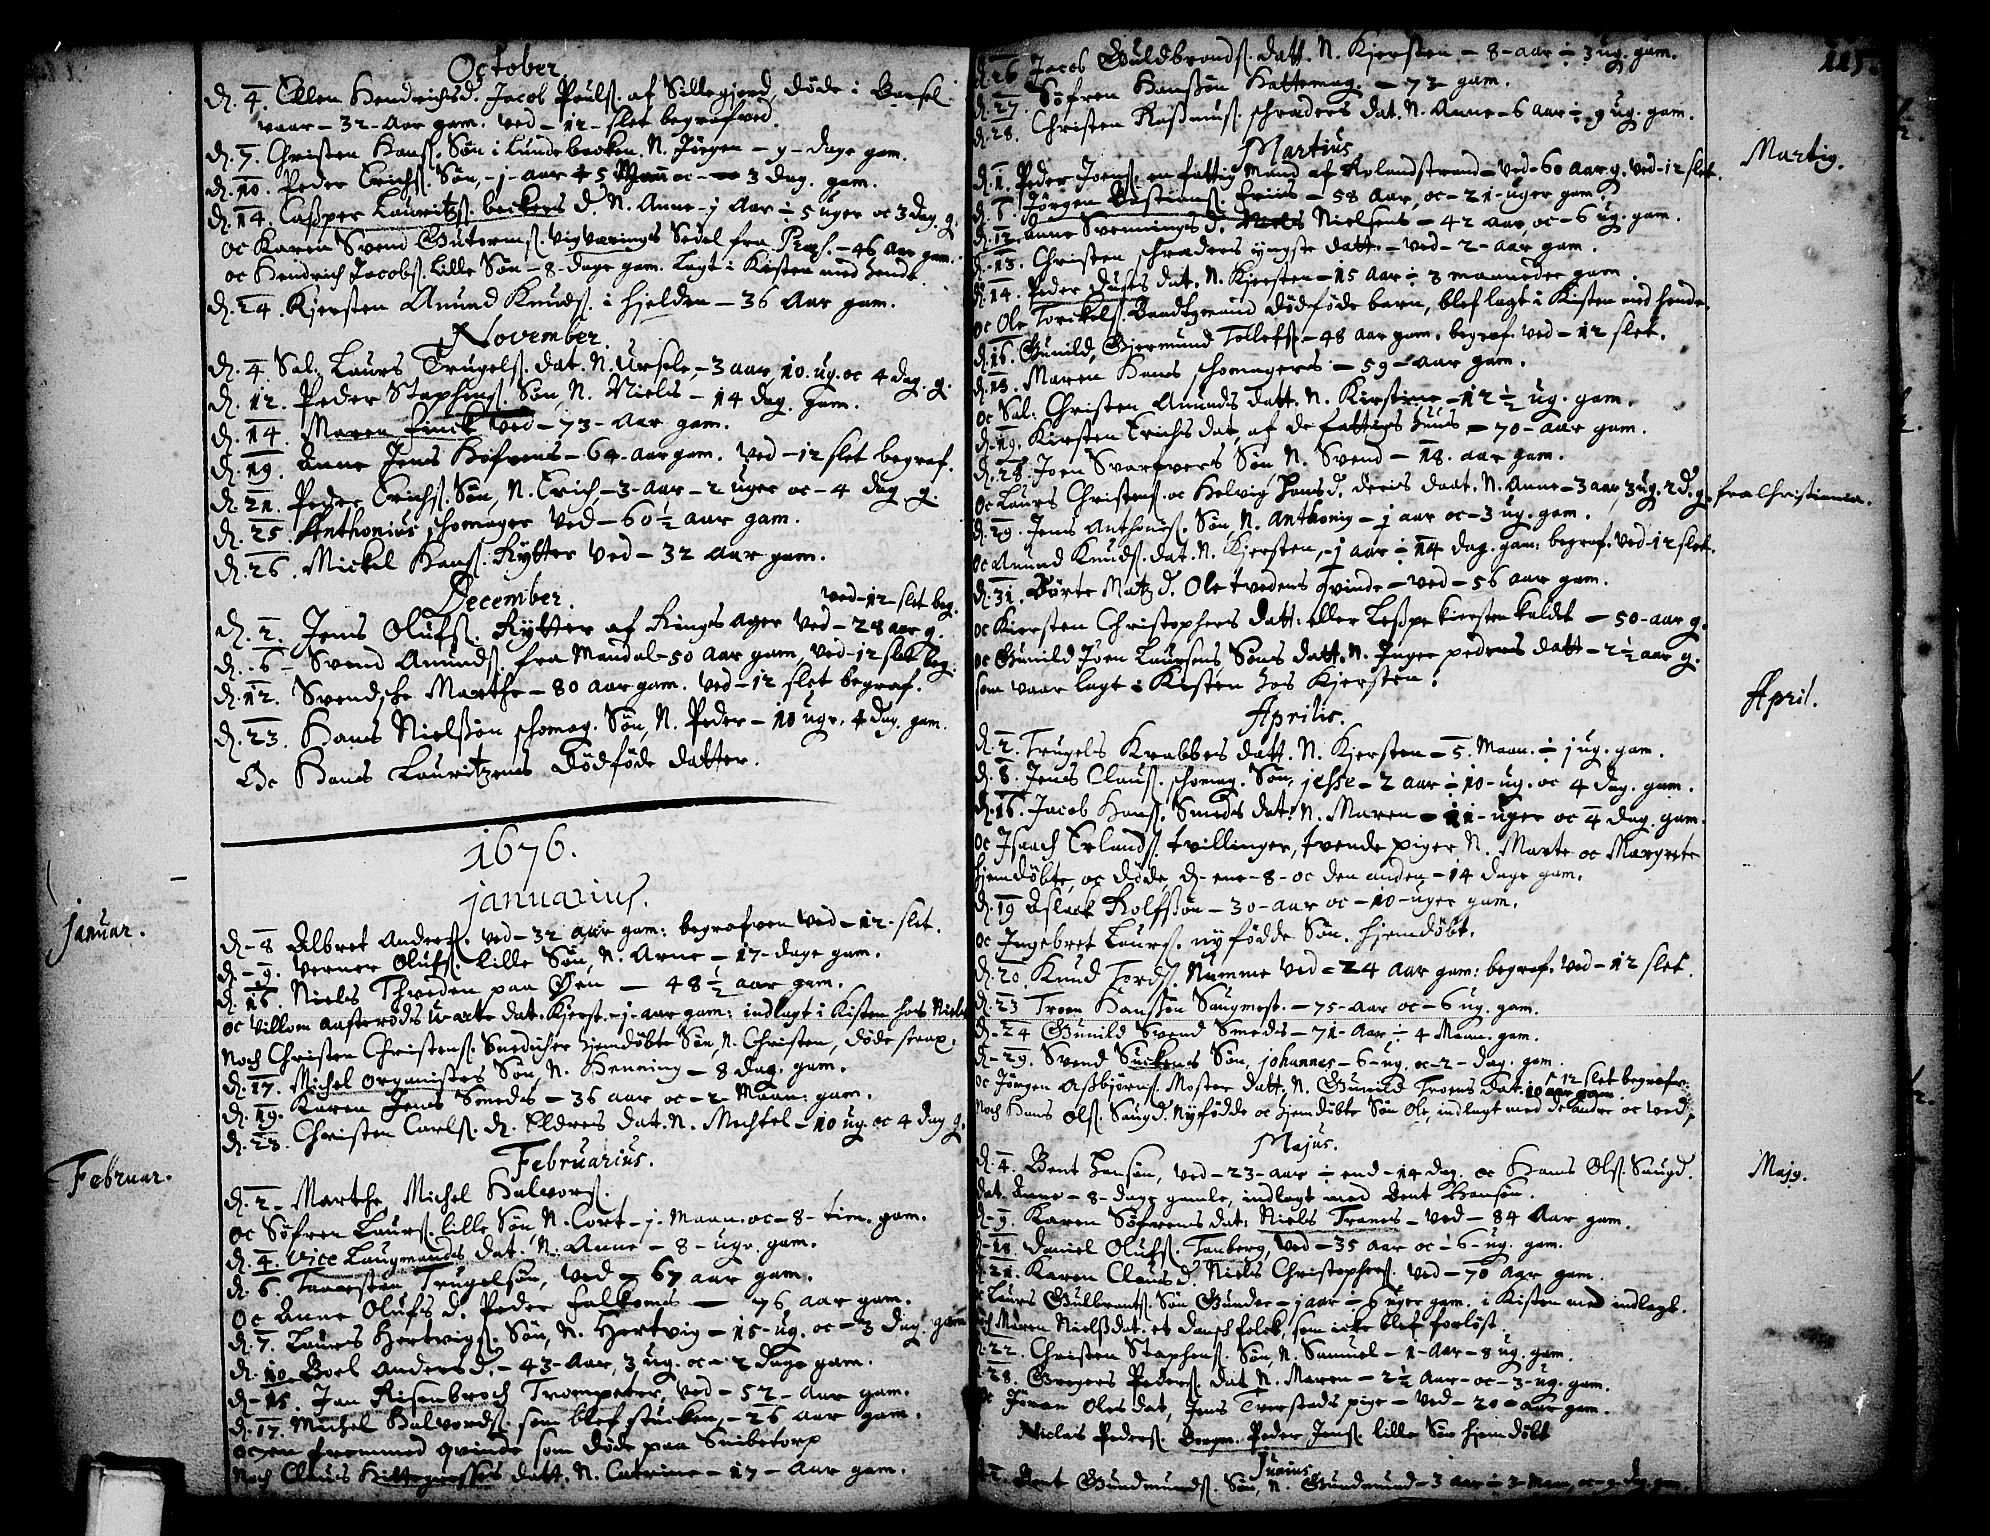 October
d. 4. Ellen Hendrichsd. Jacob Poulss. af Sillegjord, døde i Barsel
vaar - 32 - Aar gam. ved - 12 - slet begrafved.
d. 7. Christen Hanss. Søn i Lundebrocken, N. Jørgen - 9 - dage gam.
d. 10. Peder Erichss. Søn, - j - aar 5 Maan oc - 3 dag. gam.
d. 14. Casper Lauritzs. beckers d. N. Anne - j Aar ÷ 5 uger oc 3 dag. g.
oc Karen Svend Gutormss. vigværings Sedel fra Præs. - 46 Aar gam.
oc Hendrich Jacobs. Lille Søn - 8 - dage gam. Lagt i Kisten med hende
d. 24. Kjersten Amund Knuds. i Hjelden - 36 Aar gam.
November.
d. 4. Sal. Laurs Trugels. dat. N. Ursele, - 3 aar, 10. ug. oc 4 dag. g.
d. 12. Peder Staphens. Søn, N. Niels - 14 dag. gam.
d. 14. Maren Finck ved - 73 - Aar gam.
d. 19. Anne Jens Hofvens - 64 - aar gam. ved - 12 slet begraf.
d. 21. Peder Erichs. Søn, N. Erich, - 3 - aar - 2 uger oc - 4 dag g.
d. 25. Anthonius schomager ved - 60 ½ aar gam.
d. 26. Mickel Hans. Rytter ved - 32 aar gam.
December.
ved - 12 - slet beg.
d. 2. Jens Olufs. Rytter af Rings ager ved - 28 aar g.
d. 6 - Svend Amunds. fra Mandal - 50 Aar gam, ved - 12 slet beg.
d. 12. Svendsche Marthe - 80 aar gam. ved - 12 slet begraf.
d. 23. Hans Nielssøn schomag. Søn, N. Peder - 10 ugr. 4 dag. gam
Oc Hans Lauritzens Dødføde datter.
1676.
januarius.
Januar.
d. 8 Albret Anders. ved - 32 aar gam: begrafven ved - 12 - slet.
d. 9. Verner Olufs. Lille Søn, N. Arne - 17 - dage gam.
d. 16. Niels Thveden paa Øen - 48 ½ aar gam.
oc Villom dat. Kjerst. - j - aar gam: indlagt i Kisten hos Niels
Noch Christen Christens. Snedicher hjemdøbte Søn, N. Christen, døde strax.
d. 17. Michel Organistes Søn, N. Henning - 8 dag. gam.
d. 19. Karen Jens Smeds - 36 aar oc - 2 Maan: gam.
d. 23. Christen Carls. d. Eldres dat. N. Mechtel - 10 ug. oc 4 dag g.
Februarius.
Februar.
d. 2 - Marthe Michel Halvors.
oc Søfren Laurs. lille Søn N. Cort - j. Maan. oc - 8 - tim. gam.
d. 4. Vice Laugmands dat. N. Anne - 8 - ugr. gam.
d. 6. Taarsten Trugelsøn, ved - 67 aar gam.
oc Anne Olufs d. Peder Falkoms - 76 aar gam.
d. 7. Laurs Hertvigs. Søn, N. Hertvig - 15 - ug. oc - 3 dag. gam
d. 10 Boel Anders d. - 43 - Aar, 3 ug. oc - 2 dage gam.
d. 15. Jan Risenbroch Trompeter, ved - 52 - aar gam.
d. 17. Michel Halvords. som blef stucken, - 26 aar gam.
oc en fremmed qvinde som døde paa Snibetorp
Noch Claus Hittegrosses datt. N. Catrine - 17 - Aar gam.
115.
d. 26 Jacob Guldbrands. datt. N. Kjersten - 8 - aar ÷ 3 ug. gam.
d. 27. Søfren Hanssøn Hattemag. - 73 gam.
d. 28. Christen Rasmus. schraders dat. N. Anne - 6 aar ÷ 9 ug. gam.
Martius
Martig.
d. 1. Peder Joens. en fattig Mand af Rolandstrand - ved - 60 aar g. ved - 12 slet.
d. 6. Jørgen Bastians. Friis - 58 Aar, oc - 21 - uger gam.
d. 12. Anne Svennings d. Nielsens - 42 aar oc - 6 ug. gam.
d. 13. Christen schraders yngste datt. - ved - 2 - aar gam.
d. 14. Peder Dufs dat. N. Kjersten - 15 Aar ÷ 3 maaneder gam.
oc Ole Torckels. Baadtzmand dødføde barn, blef lagt i Kisten med hende.
d. 16. Gunild, Gjermund Tollefs. - 48 aar gam. begraf. ved - 12 slet.
d. 18. Maren Hans schomagers - 59 - aar gam.
oc Sal: Christen Amunds datt. N. Kirstine - 12 ½ ug. gam.
d. 19. Kirsten Erichs dat, af de fattigs huus - 70 - aar gam.
d. 28. Joen Svarfvers Søn N. Svend - 18. aar gam.
oc Laurs Christens. oc Helvig Hans d. deris daat. N. Anne - 3 aar, 3 ug. 2 d. g. fra Christiania.
d. 29. Jens Anthonis. Søn N. Anthonig - j aar oc - 3 ug. gam.
oc Amund Knuds. dat. N. Kjersten, - j aar ÷ 14 dag. gam: begraf. ved - 12 slet.
d. 31. Børte Matz d. Ole Tvedens qvinde - ved - 56 aar gam.
oc Kiersten Christophers datt: eller Lespe kiersten kaldt - 50 - aar g.
oc Gunild Joen Laursens Søns datt. N. Inger peders datt - 2 ½ aar g.
som vaar lagt i Kisten hos Kjersten.
Aprilis.
April.
d. 2. Trugels Krabbes datt. N. Kjersten - 5. Maan. ÷ j ug. gam.
d. 8. Jens Claus. schomag. Søn, jesse - 2 aar ÷ 10 - ug. oc 4 dag. gam.
d. 16. Jacob Hans. Smeds dat. N. Maren - 11 - uger oc 4 dag. gam.
oc Isaach Erlands. tvillinger, tvende piger N. Marte oc Margrete
hjemdøbte, oc døde, d. ene - 8 - oc den anden - 14 dage gam.
d. 19 Aslack Rolfssøn - 30 - aar oc - 10 - uger gam.
oc Ingebret Laurs. nyfødde Søn. hjemdøbt.
d. 20. Knud Tords. Numme ved - 24 Aar gam: begraf. ved - 12 slet.
d. 23 Troen Hanssøn Saugmest. - 75 - Aar oc - 6 ug. gam.
d. 24 Gunild Svend Smeds - 71 - Aar ÷ 4 Maan. gam.
d. 29. Svend Suckens Søn, johannes - 6 - ug. oc - 2 - dag. gam.
oc Jørgen Asbjørns. Moster datt. N. Gunild Troens dat. 10 aar gam. 12 slet begrafv:
Noch Hans Ols. Saugd. Nyfødde oc hjemdøbte Søn Ole, indlagt med de andre oc ved,
Majus.
Majg.
d. 4. Bent Hansøn, ved - 23 - aar ÷ end - 14 dag. oc Hans Ols. Saugd.
dat. Anne - 8 - dage gamle, indlagt med Bent Hansøn.
d. 9. Karen Søfrens dat: Niels Tranes - ved - 84 Aar gam.
d. 18. Daniel Olufs. Tanberg, ved - 35 aar oc - 6 - ug. gam.
d. 21. Karen Claus d. Niels Christophers. ved - 70 Aar gam.
oc Laurs Gulbrants. Søn Gunder - j aar ÷ 6 uger gam. i Kisten med indlagt.
och Maren Nielsdat. et dansch folck, som icke blef forløst.
d. 22. Christen Staphens. Søn, N. Samuel - 1 - Aar - 8 ug. gam.
d. 28. Gregers Peders. dat N. Maren - 2 ½ Aar - oc - 3 - ug. gam.
oc Joran Oles dat, Jens Tverstads pige - ved - 20 - aar gam.
Niclas Peders. Borgm. Peder Jens. lille Søn hjemdøbt
Junius.
d. 2. Bent Gundmunds. Søn, N. Gundmund - 3 aar ÷ 3 Maan, oc - 9 dag. gam.